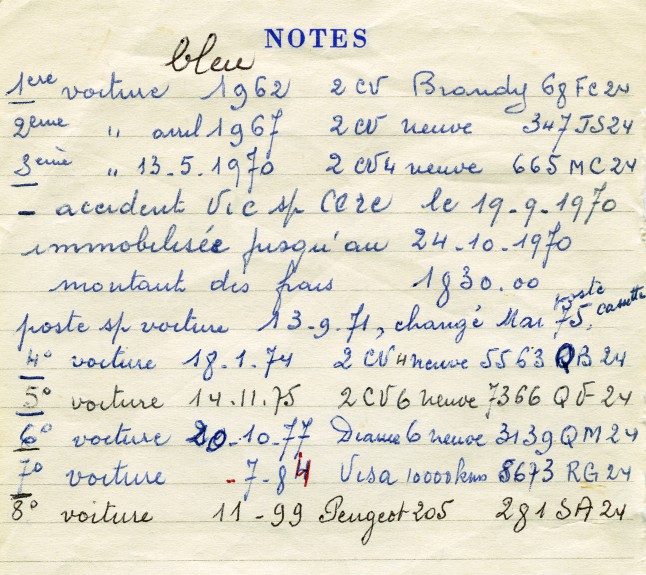 NOTES
bleu
1ere voiture 1962 2 CV Brandy 68 FC 24
2eme " avril 1967 2 CV neuve 347 JS 24
3eme " 13.5.1970 2 CV4 neuve 665 MC 24
- accident Vic sp Cere le 19.9.1970
immobilisée jusqu'au 24.10.1970
montant des frais 1830.00
poste sp voiture 13.9.71, changé Mai 75, poste cassette
4° voiture 18.1.74 2 CV4 neuve 5563 QB 24
5° voiture 14.11.75 2 CV6 neuve 7366 QF 24
6° voiture 20.10.77 Diane 6 neuve 3139 QM 24
7° voiture -7-84 Visa 10000kms 8673 RG 24
8° voiture 11-99 Peugeot 205 281 SA 24